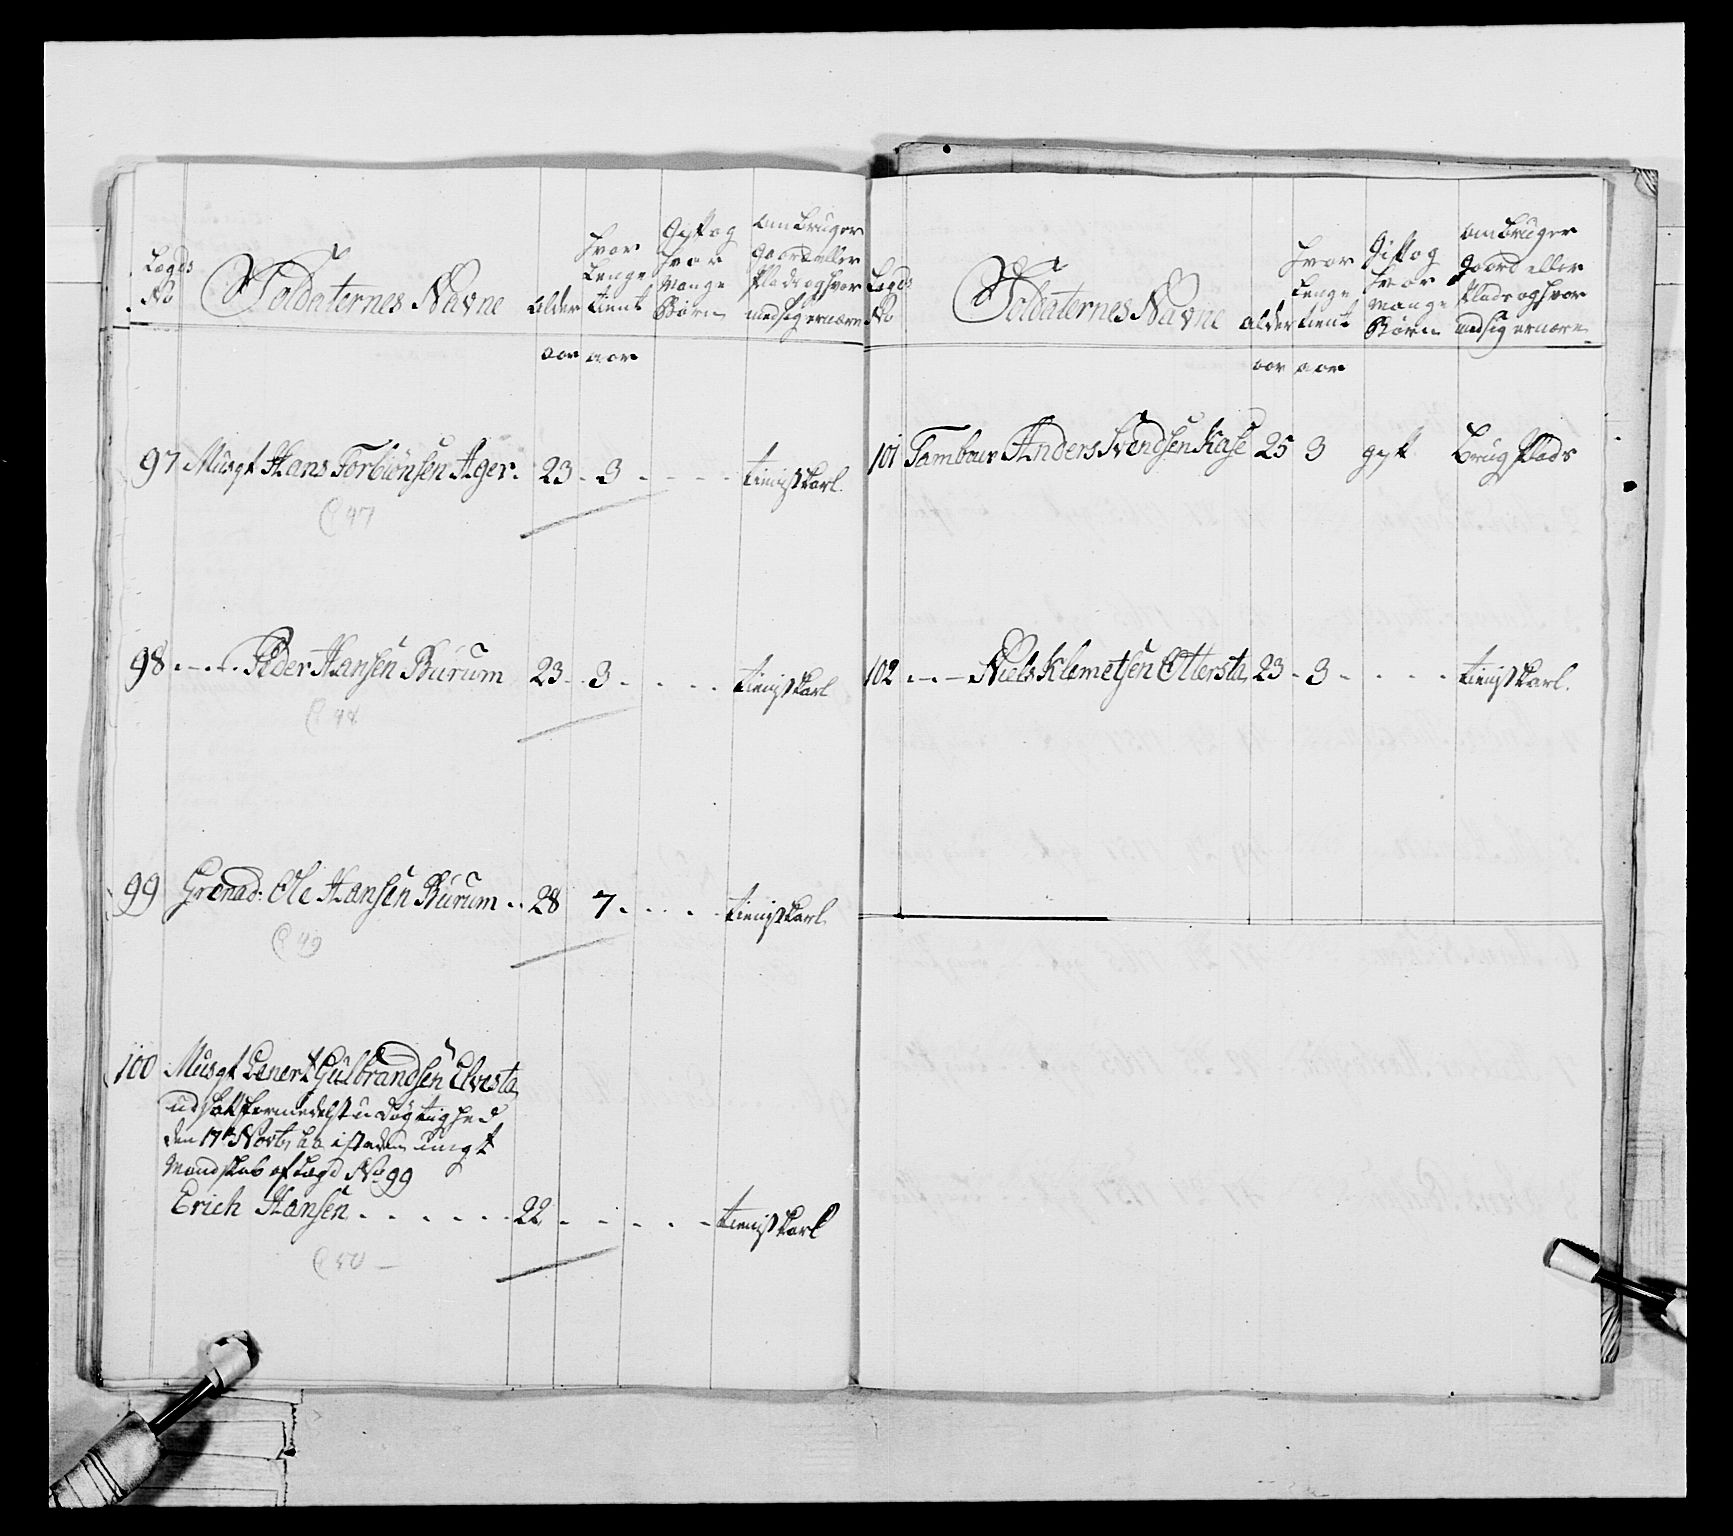 Legds No
Soldaternes Navne
Alder
hvor Lenge tient
Gift og hvor mange Børn
om bruger gaord eller Plads og hvor med sig ernære
aar aar
97 Musqt Hans Torbiönsen Ager. 23 - 3 - - - - tienistkarl.
C 47
98 - - - Peder Hansen Burum 23 - 3 - - - - tienistkarl
C 48
99 Grenad: Ole Hansen Burum - - 28 7 - - - - tienistkarl
C 49
100 Musqt Lenert Gulbrandsen Elvesta
udsat formedelst uDögtighed
den 17de Novbr: h. a. i steden ungt
Mandskab af Lægd No 99
Erich Hansen - - - - - - 22 - - - - - tienistkarl
C 50 -
Legds No
Soldaternes Navne
Alder
hvor Lenge tient
Gift og hvor mange Børn
om bruger gaord eller Plads og hvor med sig ernære
aar aar
101 Tambour Anders Svendsen Kase 25 3 gift brug Plads
102 - - - Niels Klemetsen Ottersta 23 - 3 - - - - tienistkarl.